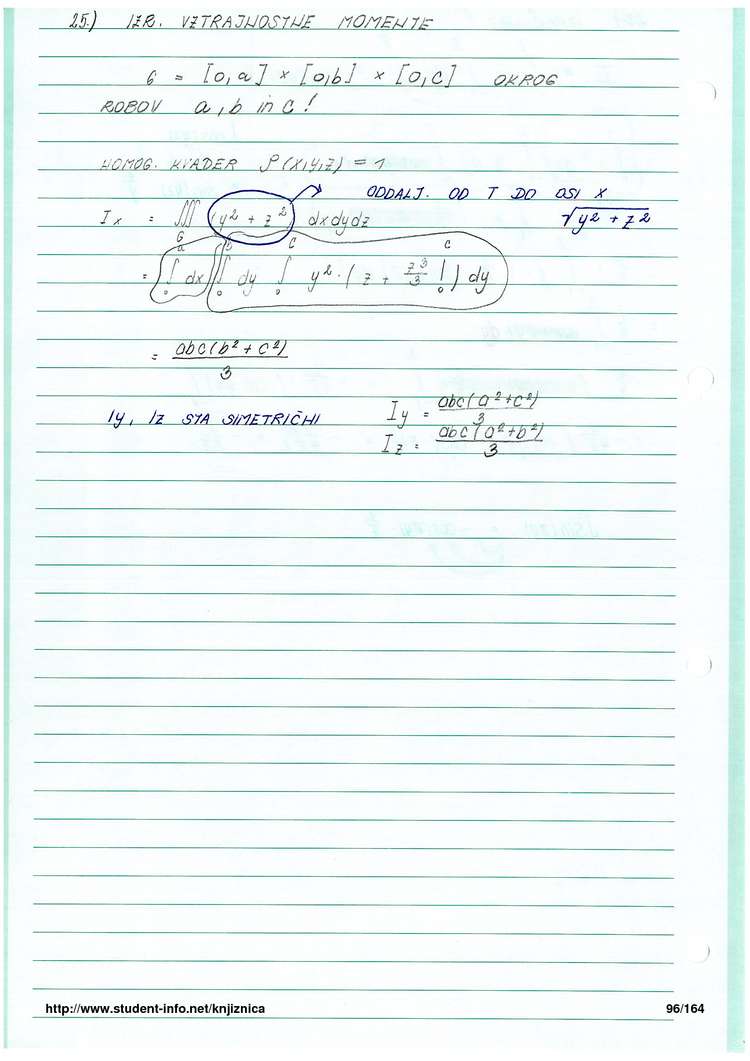 25.) IZR. VZTRAJNOSTNE MOMENTE
G = [0,a] × [0,b] × [0,c] OKROG
ROBOV a, b in c!
HOMOG. KVADER ρ(x,y,z) = 1
ODDALJ. OD T DO OSI X
I x = ∭ G (y² + z²) dxdydz √y² + z²
= ∫ 0 a dx ∫ 0 b dy ∫ 0 c y² · (z + z³/3 | 0 c) dy
= abc(b² + c²)/3
Iy, Iz STA SIMETRIČNI I y = abc(a² + c²)/3
I z = abc(a² + b²)/3
http://www.student-info.net/knjiznica 96/164